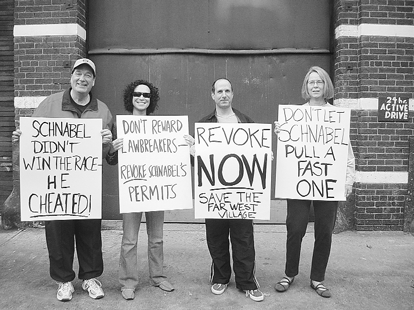 SCHNABEL
DIDN'T
WIN THE RACE-
HE
CHEATED!
DON'T REWARD
LAWBREAKERS-
REVOKE SCHNABEL'S
PERMITS
REVOKE
NOW
SAVE THE
FAR WEST
VILLAGE
DON'T LET
SCHNABEL
PULL A
FAST
ONE
24 hr.
ACTIVE
DRIVE